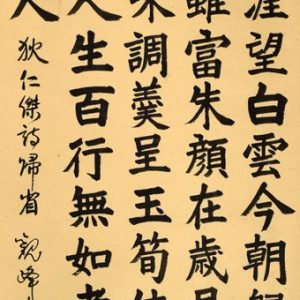 涯望白雲今朝歸
雖富朱顏在歲月
調羹呈玉筍
人生百行無如孝
狄仁傑詩歸省 觀峰